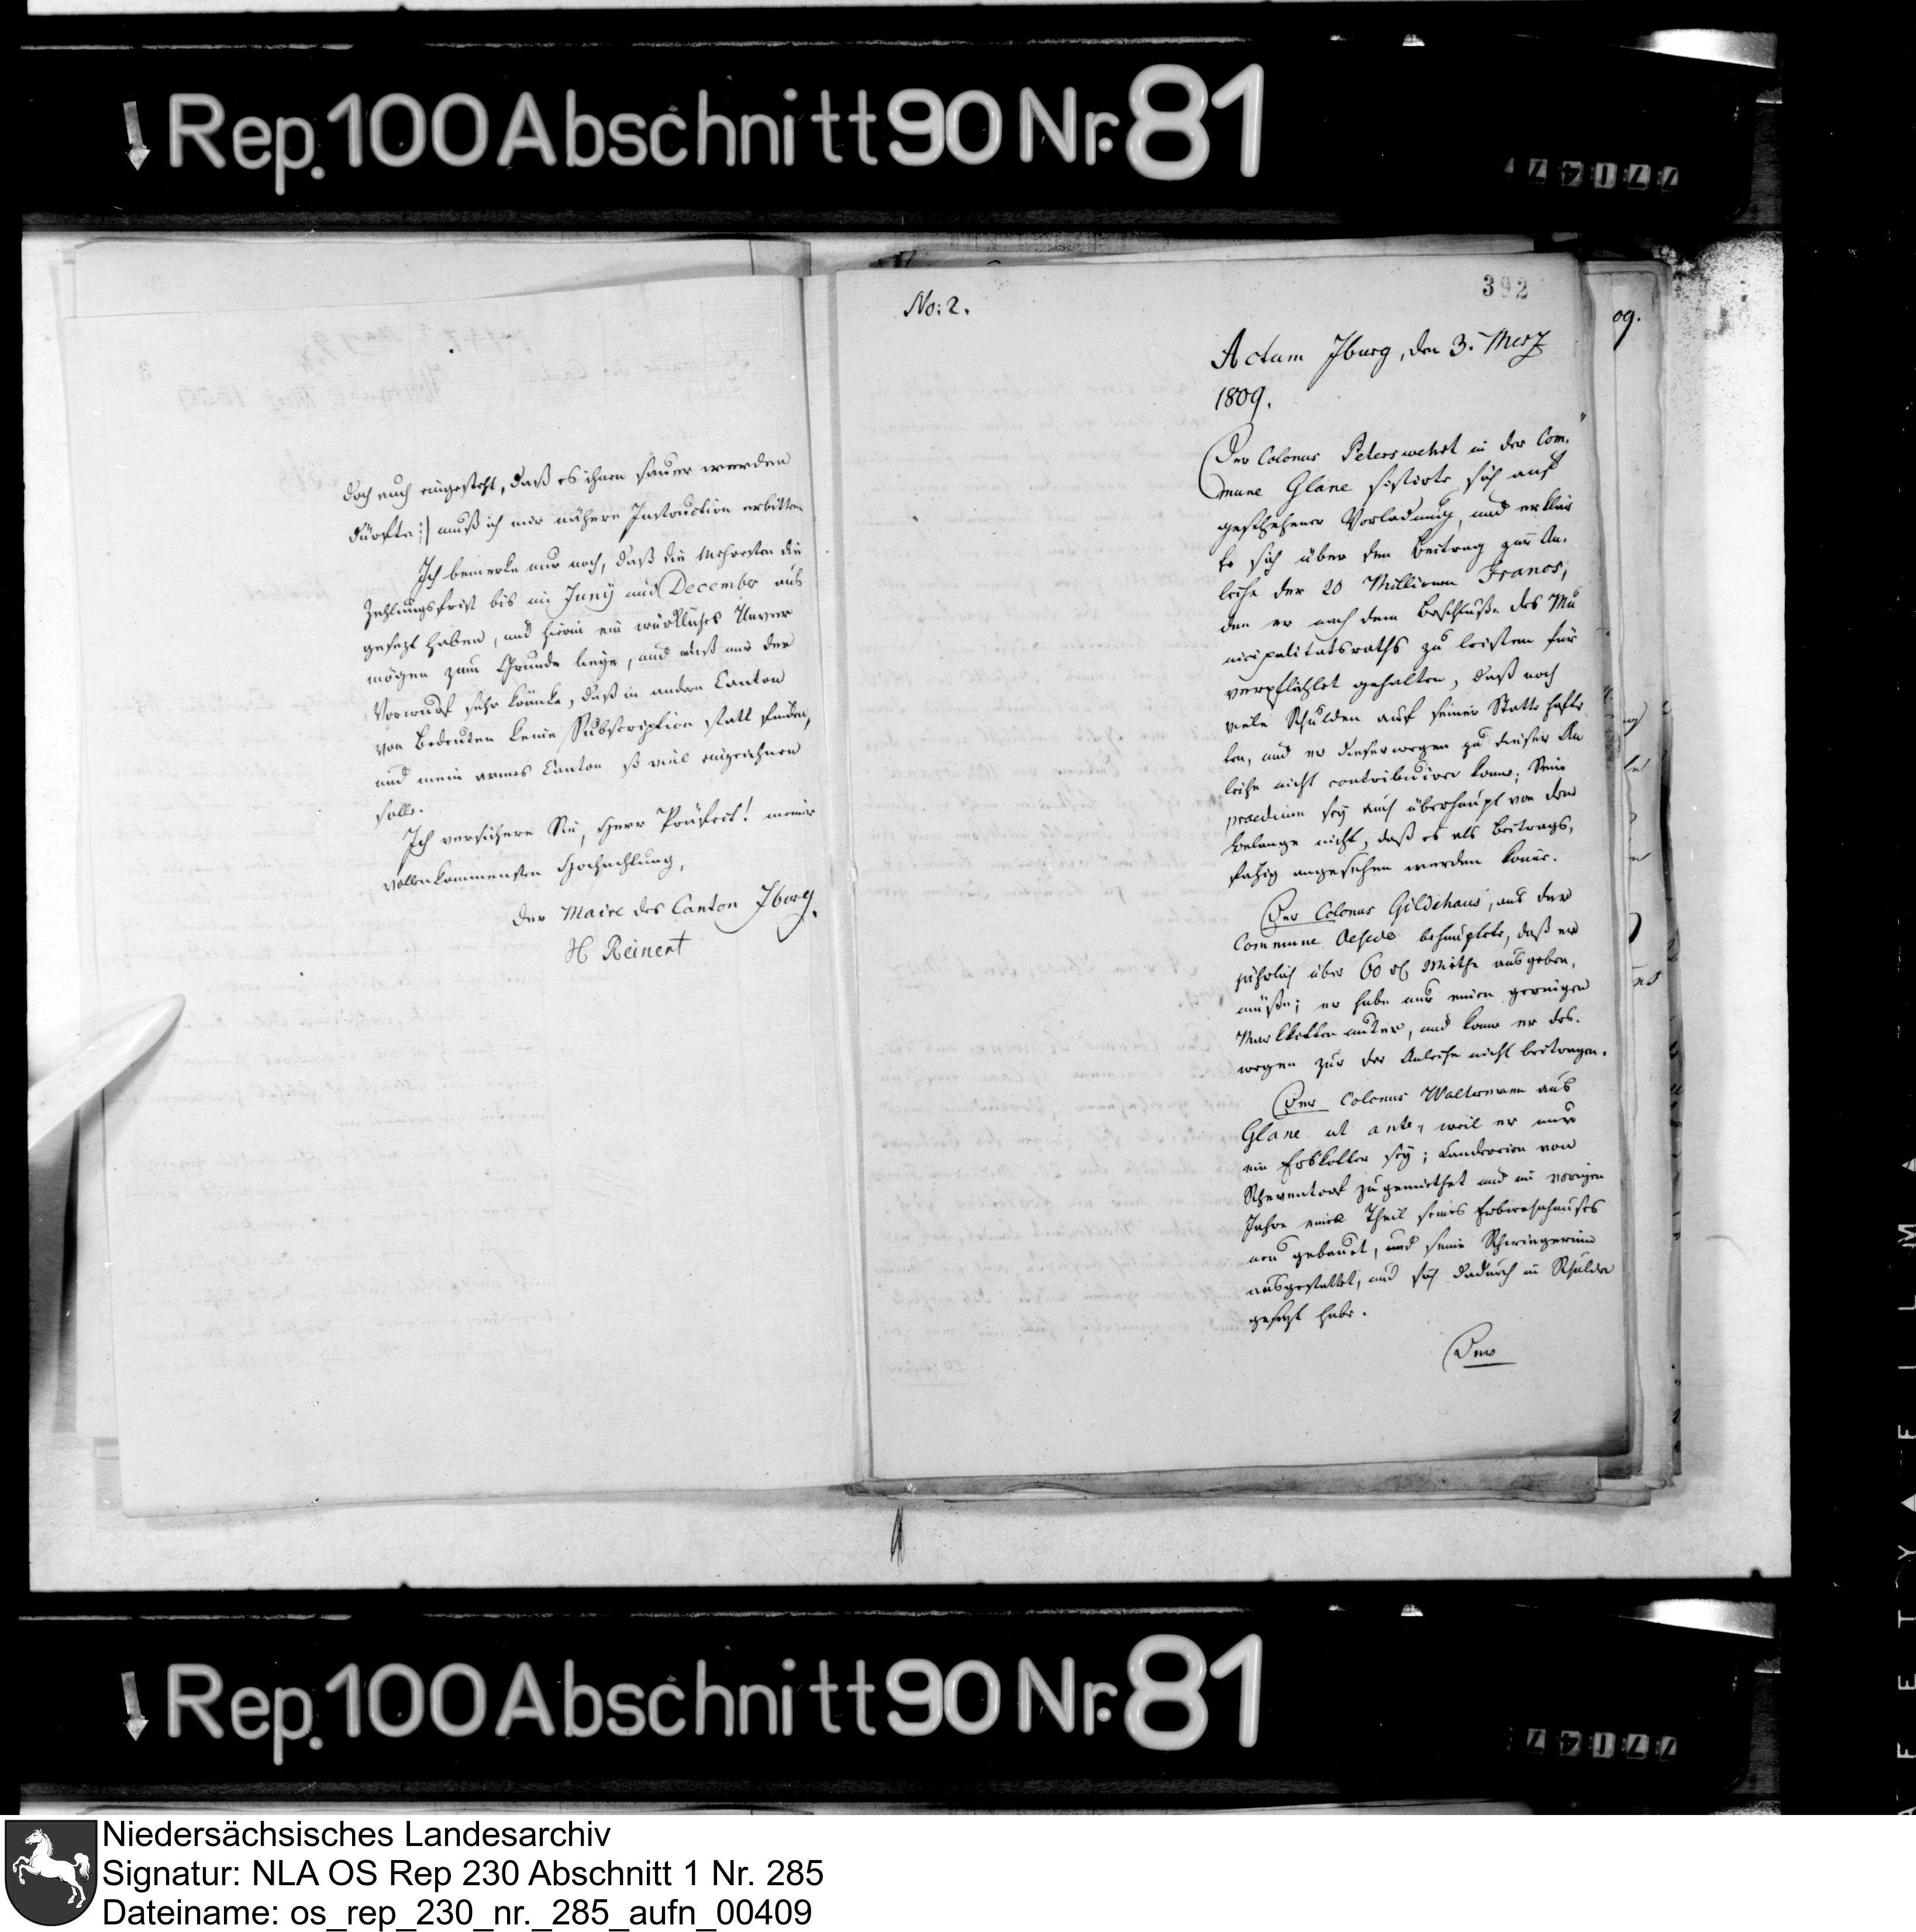 Rep. 100 Abschnitt 90 Nr. 81
doch auch eingesteht, daß es ihnen sauer werden
dürfte :| muß ich mir nähere Instruction erbitten
Ich bemerke nur noch, daß die Mehresten die
Zahlungsfrist bis im Juny und Decembr aus
gesezt haben, und hierin ein würkliches Unver
mögen zum Grunde liege, und muß mir der
Vorwurf sehr kränke, daß in andern Canton
von Bedeuten keine Subscription statt finden,
und mein armes Canton so viel einzeichnen
solle.
Ich versichere Sie, Herr Präfect! meine
vollenkommensten Hochachtung,
Der Maire des Canton Jburg.
H Reinert
392
No: 2.
Actum Jburg, den 3. Merz
1809.
Der Colonus Peterswehrt in der Com„
mune Glane sistirte sich auf
geschehener Vorladung, und erklär
te sich über den Beitrag zur An„
leihe der 20 Millionen Francs,
den er nach dem Beschluße des Mu
nicipalitatsraths zu leisten für
verpflichtet gehalten, daß noch
viele Schulden auf seiner Statte hafte
ten, und er dieserwegen zu dieser An
leihe nicht contribuiren könne; Sein
praedium sey auch überhaupt von dem
Belange nicht, daß es als Beitrags„
fähig angesehen werden könne.
Der Colonus Gildehaus, aus der
Commune Oesede behauptete, daß er
jährlich über 60 rl Miethe ausgeben,
müße; er habe nur einen geringen
Markkotten unter, und könne er des„
wegen zur der Anleihe nicht beitragen.
Der Colonus Waltermann aus
Glane ut ante, weil er nur
ein Erbkotter sey; Landereien von
Scheventorf zugemiethet und im vorigen
Jahre einen Theil seines Erbwohnhauses
neu gebauet, und seine Schwiegerinn
ausgestattet, und sich dadurch in Schulden
gesezt habe.
Der
09.
Rep. 100 Abschnitt 90 Nr. 81
Niedersächsisches Landesarchiv
Signatur: NLA OS Rep 230 Abschnitt 1 Nr. 285
Dateiname: os_rep_230_nr._285_aufn_00409